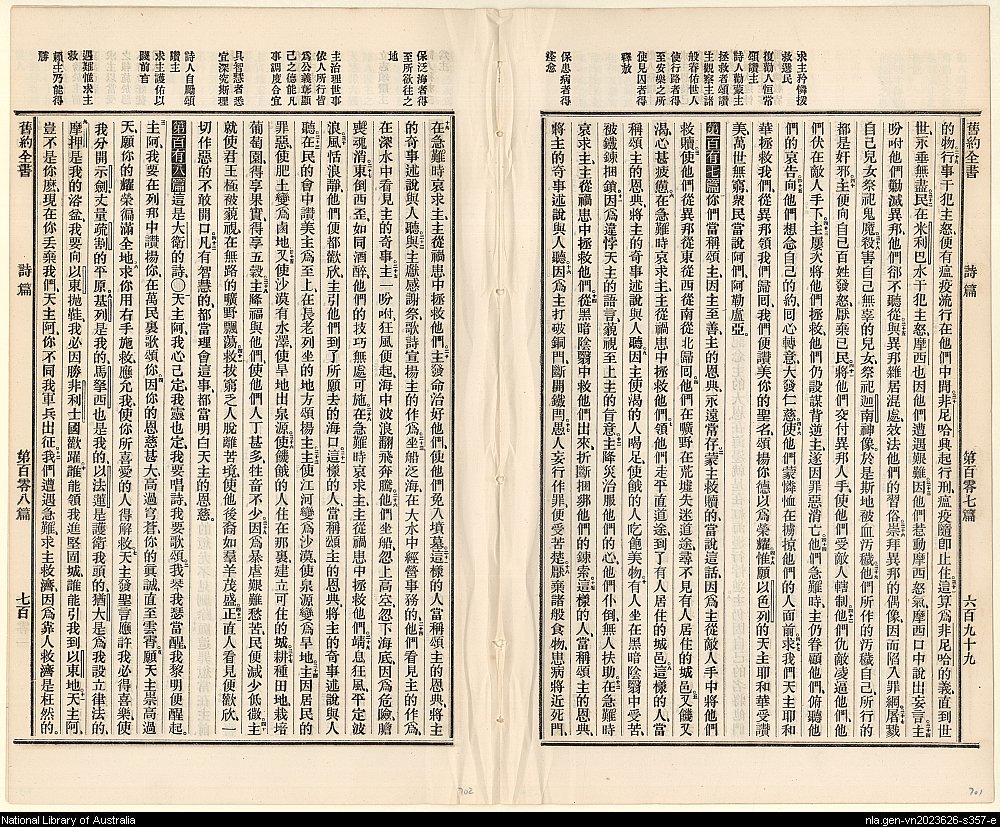 舊約全書 詩篇 第百零七篇 六百九十九
求主矜憐援
救選民
復勸人恒常
頌讚主
詩人勸蒙主
拯救者頌讚
主觀察主諸
般眷佑世人
使行路者得
至安樂之所
使見囚者得
釋放
保患病者得
痊愈
的物行事干犯主怒便有瘟疫流行在他們中間非尼哈典起行刑瘟疫隨即止住這算爲非尼哈的義直到世
世永垂無盡民在米利巴水干犯主怒摩西也因他們遭遇艱難因他們惹動摩西怒氣摩西口中說出妄言主
吩咐他們勦滅異邦他們卻不聽從與異邦雜居混處效法他們的習俗崇拜異邦的偶像因而陷入罪網屠戮
自己兒女祭祀鬼魔殺害自己無辜的兒女祭祀迦南神像於是斯地被血汚穢他們所作的汚穢自己所行的
都是奸邪主便向自己百姓發怒厭棄己民將他們交付異邦人手使他們受敵人轄制他們仇敵凌逼他們他
們伏在敵人手下主屢次將他們拯救他們仍設謀背逆主遂因罪惡消亡他們急難時主仍眷顧他們俯聽他
們的哀告向他們想念自己的約囘心轉意大發仁慈使他們蒙憐恤在擄掠他們的人面前求我們天主耶和
華拯救我們從異邦領我們歸囘我們便讚美你的聖名頌揚你德以爲榮耀惟願以色列的天主耶和華受讚
美萬世無窮衆民當說阿們阿勒盧亞
第百有七篇你們當稱頌主因主至善主的恩典永遠常存蒙主救贖的當說這話因爲主從敵人手中將他們
救贖使他們從異邦從東從西從南從北歸囘他們在曠野在荒墟失迷道途尋不見有人居住的城邑又饑又
渴心甚疲憊在急難時哀求主主從禍患中拯救他們領他們走平直道途到了有人居住的城邑這樣的人當
稱頌主的恩典將主的奇事述說與人聽因主使渴的人喝足使餓的人吃飽美物有人坐在黑暗陰翳中受苦
被鐵鍊捆鎖因爲違悖天主的語言藐視至上主的旨意主降災治服他們的心他們仆倒無人扶助在急難時
哀求主主從禍患中拯救他們從黑暗陰翳中救他們出來折斷捆綁他們的鍊索這樣的人當稱頌主的恩典
將主的奇事述說與人聽因爲主打破銅門斷開鐵閂愚人妄行作罪便受苦楚厭棄諸般食物患病將近死門
保泛海者得
至所欲往之
地
主治理世事
依人所行皆
爲公義奪顯
己之德能凡
事調度合宜
具智慧者悉
宜深究斯理
詩人自勵頌
讚主
求主護佑以
踐前言
遇難懨求主
救
賴主乃能得
勝
在急難時哀求主主從禍患中拯救他們主發命治好他們使他們免入墳墓這樣的人當稱頌主的恩典將主
的奇事述說與人聽與主獻感謝祭歌詩宣揚主的作爲坐船泛海在大水中經營事務的他們看見主的作爲
在深水中看見主的奇事主一吩咐狂風便起海中波浪翻飛奔騰他們坐船忽上高空忽下海底因爲危險膽
喪魂消東倒西歪如同酒醉他們的技巧無處可施在急難時哀求主主從禍患中拯救他們靖息狂風平定波
浪風恬浪靜他們便都歡欣主引他們到了所願去的海口這樣的人當稱頌主的恩典將主的奇事述說與人
聽在民的會中讚美主爲至上在長老列坐的地方頌揚主主使江河變爲沙漠使泉源變爲旱地主因居民的
罪惡使肥土變爲鹵地又使沙漠有水澤使旱地出泉源使饑餓的人住在那裏建立可住的城耕種田地栽培
葡萄園得享果實得享五穀主降福與他們使他們人丁甚多牲畜不少因爲暴虐艱難愁苦民便減少低微主
就使君王極被藐視在無路的曠野飄蕩救拔窮乏人脫離苦境使他後裔如羣羊茂盛正直人看見便歡欣一
切作惡的不敢開口凡有智慧的都當理會這事都當明白天主的恩慈
第百有八篇這是大衛的詩○天主阿我心己定我靈也定我要唱詩我要歌頌我琴我瑟當醒我黎明便醒起
主阿我要在列邦中讚揚你在萬民裏歌頌你因你的恩慈甚大高過穹蒼你的眞誠直至雲霄願天主崇高過
天願你的耀榮徧滿全地求你用右手施救應允我使你所喜愛的人得解救天主發聖言應許我必得喜樂使
我分開示劍丈量疏割的平原基列是我的馬拏西也是我的以法蓮是護衛我頭的猶大是爲我設立律法的
摩押是我的浴盆我要向以東拋鞋我必因勝非利士國歡躍誰能領我進堅固城誰能引我到以東地天主阿
豈不是你麼現在你丟棄我們天主阿你不同我軍兵出征我們遭遇急難求主救濟因爲靠人救濟是枉然的
舊約全書 詩篇 第百零八篇 七百
702
701
National Library of Australia
nla.gen-vn2023626-s357-e